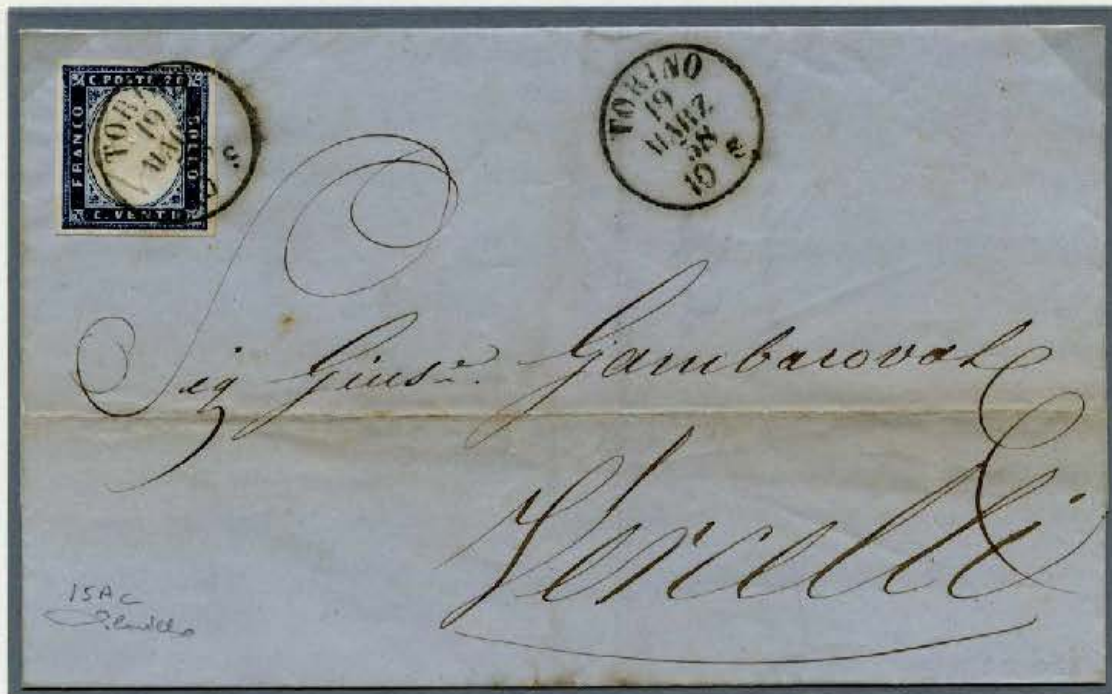 C. POSTE 20
FRANCO
BOLLO
C. VENTI
TORINO
19
MAR
S.
TORINO
19
MARZ
58
10 S
Sig Gius.e Gambarova
Vercelli
15Ac